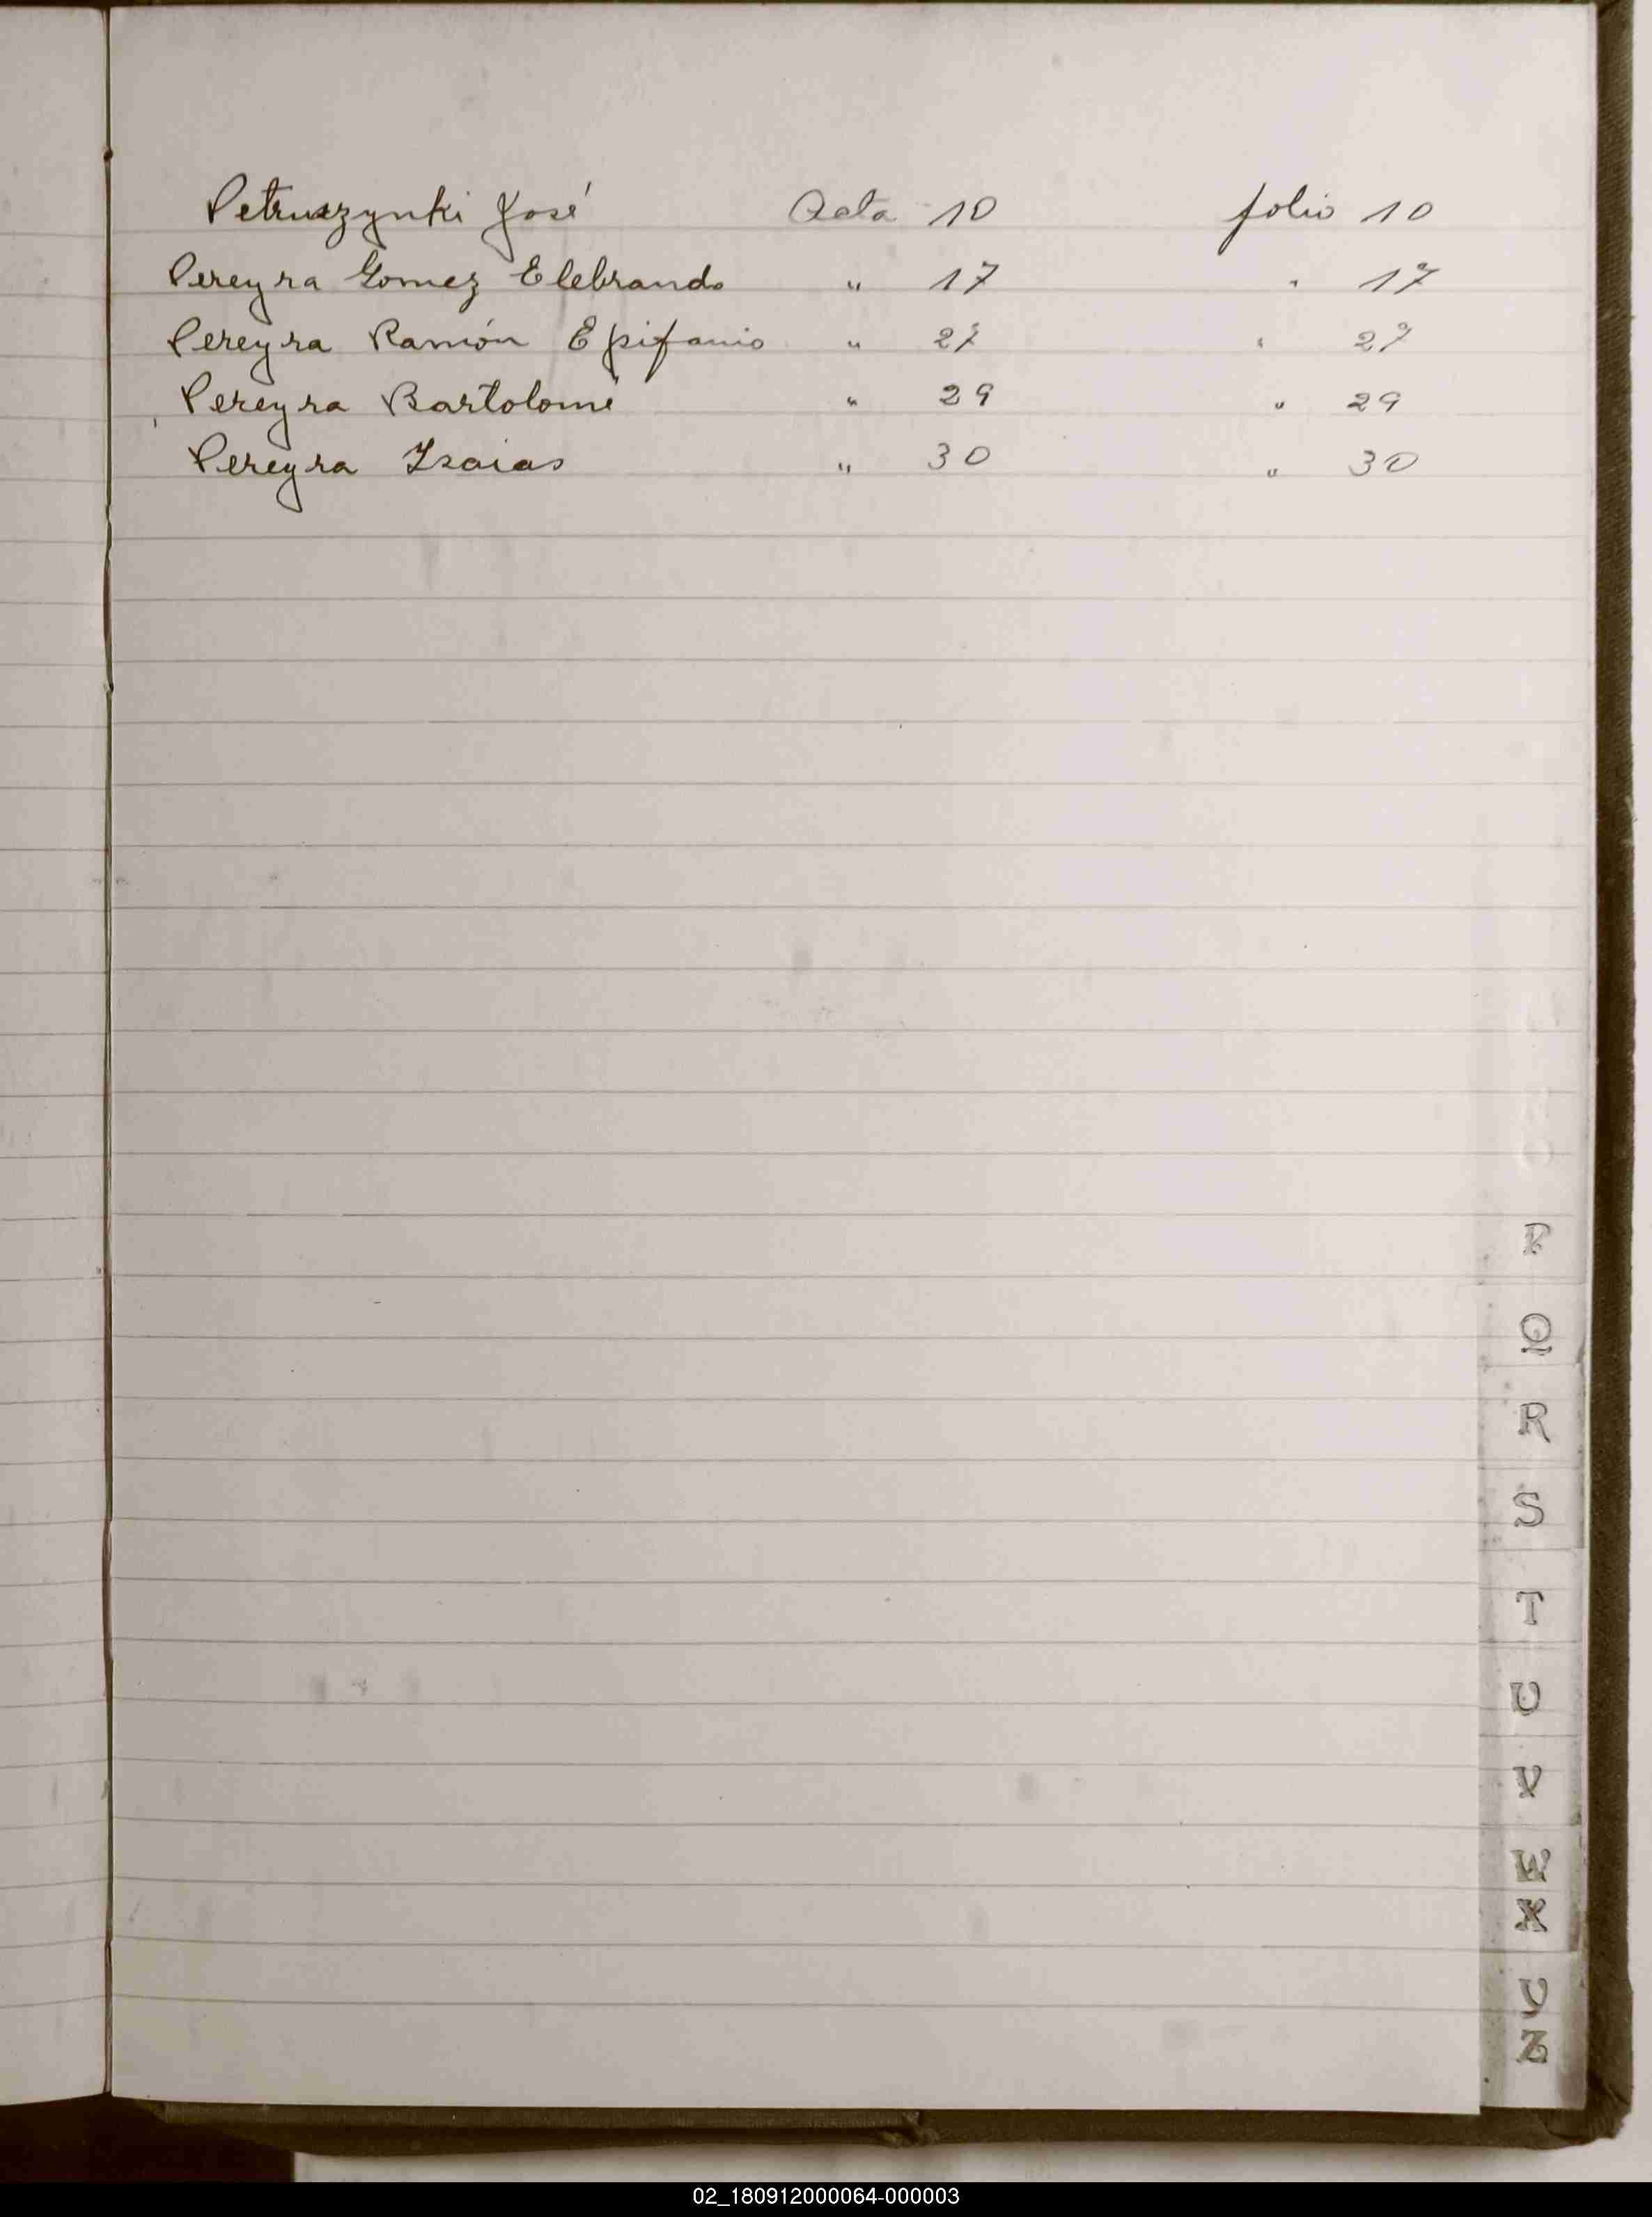 Petruszynki José Acta 10 folio 10
Pereyra Gomez Elebrando " 17 " 17
Pereyra Ramón Epifanio " 27 " 27
Pereyra Bartolomé " 29 " 29
Pereyra Isaias " 30 " 30
P
Q
R
S
T
U
V
W
X
Y
Z
02_180912000064-000003